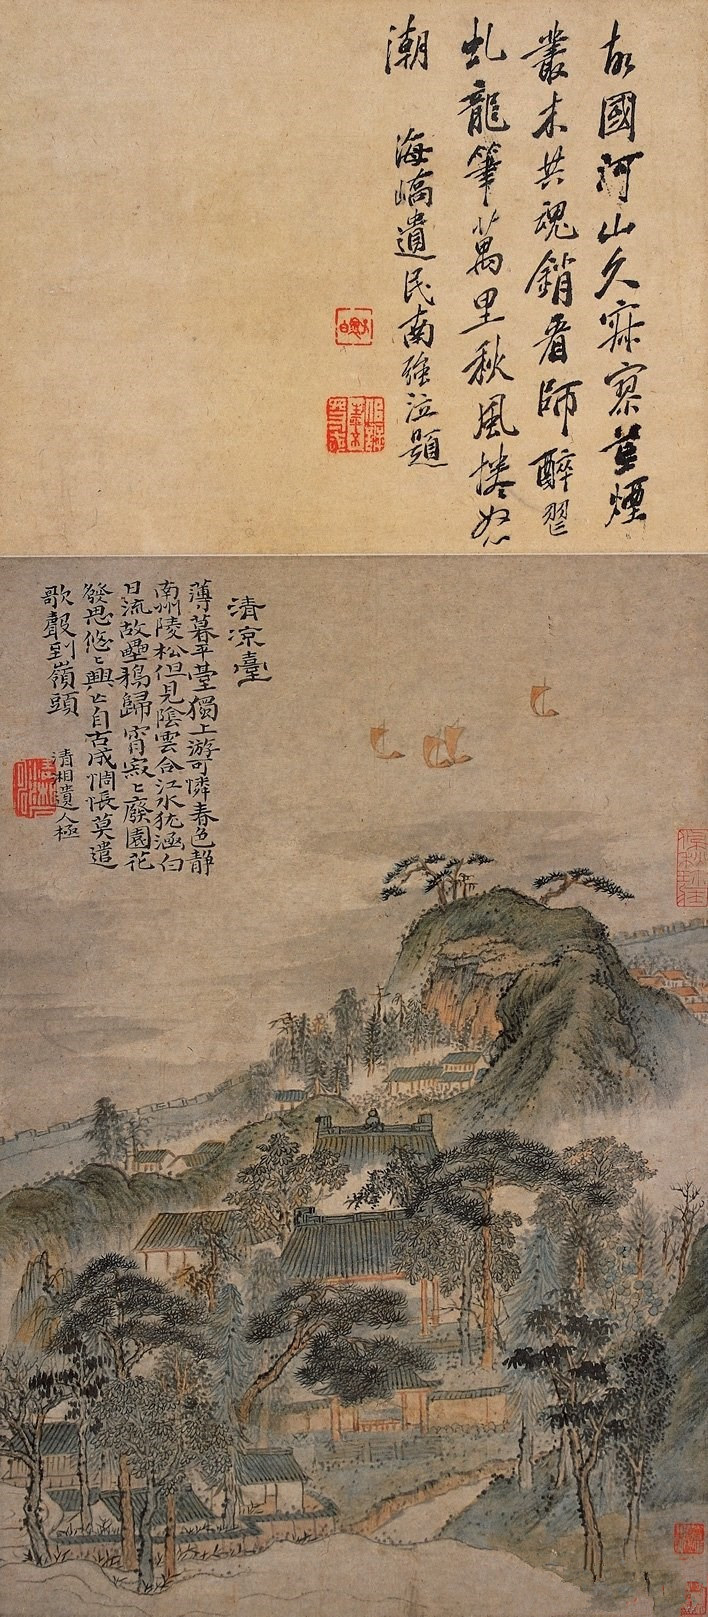 故國河山久寂寥
煙叢木共魂銷看師醉
虬龍筆萬里秋風捲怒
潮
海嶠遺民南強泣題
清涼臺
薄暮平臺獨上游可憐春色靜
南州陵松但見陰雲合江水犹涵白
日流故壘鴉歸宵寂〻廢園花
發思悠〻興亡自古成惆悵莫遣
歌聲到嶺頭
清湘遺人極